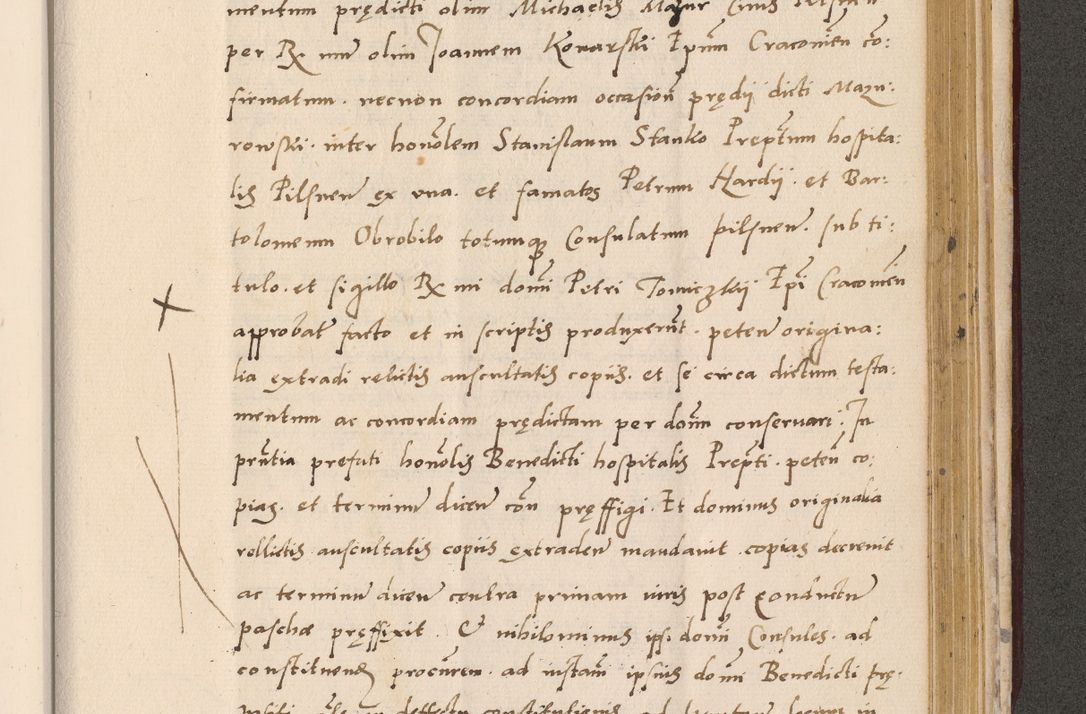 mentum prędicti olim Michaelis Mazur
per R mum olim Joannem Konarski Epum Cracoñien co:
firmatum. necnon concordiam occasioñ prędij dicti Mazu:
rowski. inter honõlem Stanislaum Stanko Preptum hospita:
lis Pilsneñ ex vna. et famatos Petrum Hardij. et Bar:
tolomeum Obrobilo totumqȝ Consulatum pilsneñ. sub ti:
tulo. et sigillo R mi domĩ Petri Tomiczkij Epĩ Cracoñien
approbat̃ facto et in scriptis produxerũt. peteñ origina:
lia extradi relictis auscultatis copijs. et se circa dictum testa:
mentum ac concordiam prędictam per dom̃ conseruari. In
prñtia prefati honõlis Benedicti hospitalis Preptĩ. peteñ co:
pias. et terminũ diceñ coñ pręffigi. Et dominus originalia
rellictis auscultatis copijs extradeñ mandauit. copias decreuit
ac terminũ diceñ contra primam iuris post Conductũ
paschæ pręffixit. Et nihilominus ipsi domĩ Consules. ad
constitueñ procũrem. ad instañ ipsius domĩ Benedicti prę:
deffectu constitutionis ad